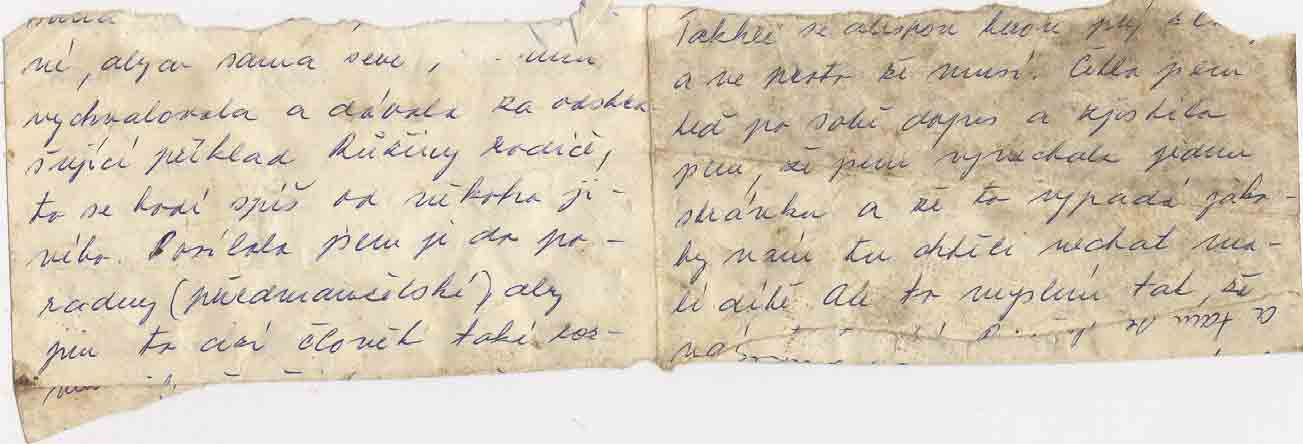 né, abych sama sebe,
vychvalovala a dávala za odstra
šující příklad Růžiny rodiče,
to se hodí spíš od někoho ji-
ného. Posílala jsem ji do po-
radny (předmanželské), aby
jim to cizí člověk také roz-
Takhle se alespoň
a ne proto že musí. Četla jsem
teď po sobě dopis a zjistila
jsem, že jsem vynechala jednu
stránku a že to vypadá jako
by nám tu chtěli nechat ma-
lé dítě. Ale to myslím tak, že